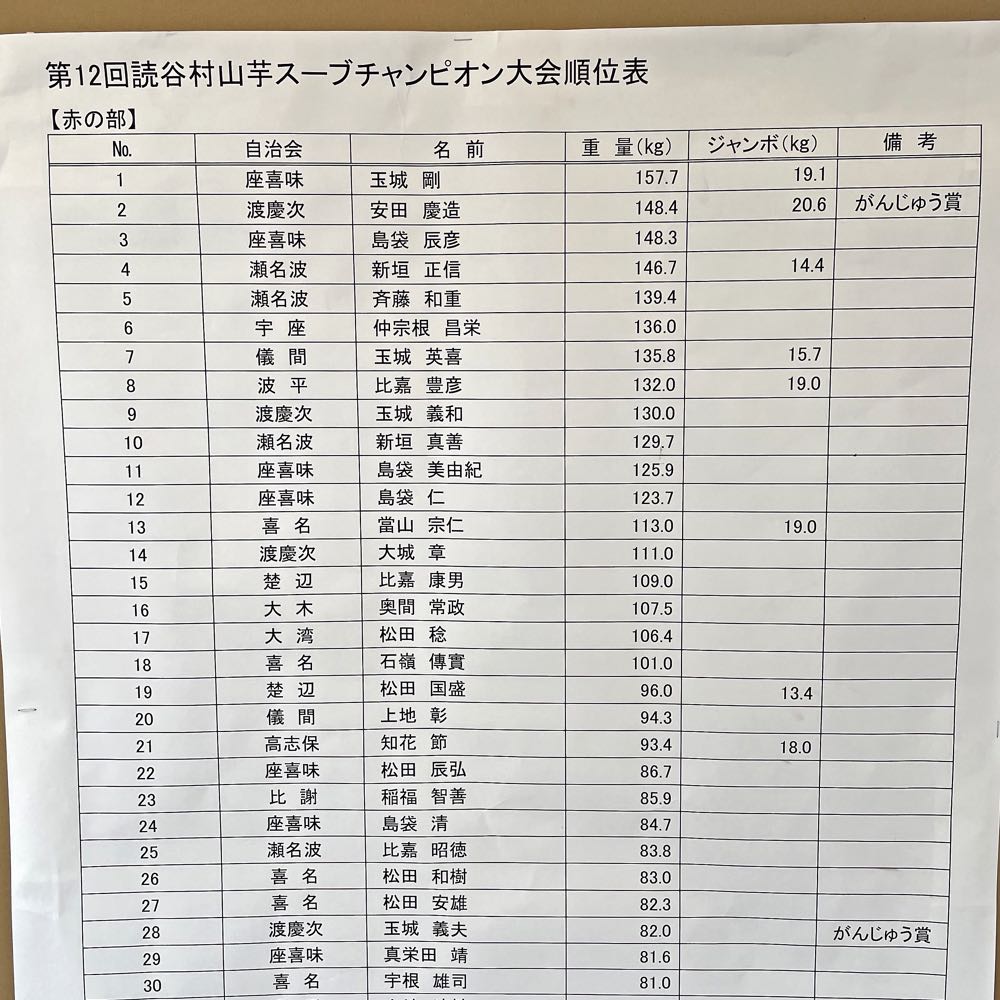 第12回読谷村山芋スーブチャンピオン大会順位表
【赤の部】
No. 自治会 名 前 重 量(kg) ジャンボ(kg) 備 考
1 座喜味 玉城 剛 157.7 19.1
2 渡慶次 安田 慶造 148.4 20.6 がんじゅう賞
3 座喜味 島袋 辰彦 148.3
4 瀬名波 新垣 正信 146.7 14.4
5 瀬名波 斉藤 和重 139.4
6 宇 座 仲宗根 昌栄 136.0
7 儀 間 玉城 英喜 135.8 15.7
8 波 平 比嘉 豊彦 132.0 19.0
9 渡慶次 玉城 義和 130.0
10 瀬名波 新垣 真善 129.7
11 座喜味 島袋 美由紀 125.9
12 座喜味 島袋 仁 123.7
13 喜 名 當山 宗仁 113.0 19.0
14 渡慶次 大城 章 111.0
15 楚 辺 比嘉 康男 109.0
16 大 木 奥間 常政 107.5
17 大 湾 松田 稔 106.4
18 喜 名 石嶺 傳實 101.0
19 楚 辺 松田 国盛 96.0 13.4
20 儀 間 上地 彰 94.3
21 高志保 知花 節 93.4 18.0
22 座喜味 松田 辰弘 86.7
23 比 謝 稲福 智善 85.9
24 座喜味 島袋 清 84.7
25 瀬名波 比嘉 昭徳 83.8
26 喜 名 松田 和樹 83.0
27 喜 名 松田 安雄 82.3
28 渡慶次 玉城 義夫 82.0 がんじゅう賞
29 座喜味 真栄田 靖 81.6
30 喜 名 宇根 雄司 81.0